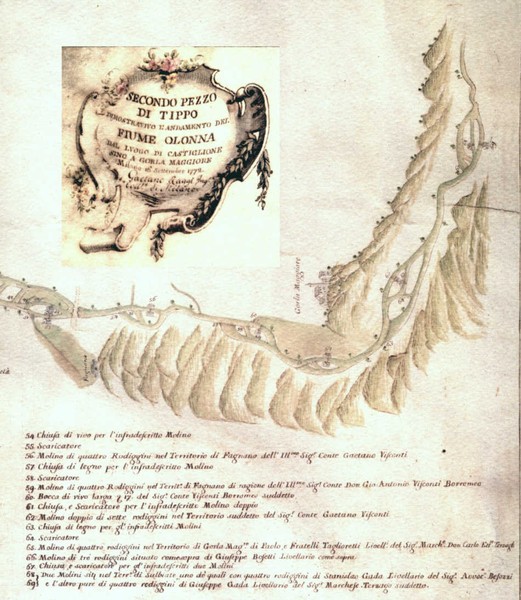 SECONDO PEZZO
DI TIPPO
DIMOSTRATIVO L'ANDAMENTO DEL
FIUME OLONNA
DAL LUOGO DI CASTIGLIONE
SINO A GORLA MAGGIORE
Milano Settembre 1772
Gaetano Raggi Ing.
di Milano
Gorla Maggiore
54. Chiusa di vivo per l'infradescritto Molino
55. Scaricatore
56. Molino di quattro Rodiggini nel Territorio di Fagnano dell' Ill.mo Sig.r Conte Gaetano Visconti
57. Chiusa di legno per l'infradescritto Molino
58. Scaricatore
59. Molino di quattro Rodiggini nel Territ.o di Fagnano di ragione dell' Ill.mo Sig.r Conte Don Gio. Antonio Visconti Borromeo
60. Bocca di vivo larga del Sig.r Conte Visconti Borromeo suddetto
61. Chiusa, e Scaricatore per l'infradescritto Molino doppio
62. Molino doppio di sette rodiggini nel Territorio suddetto del Sig.r Conte Gaetano Visconti
63. Chiusa di legno per gl'infradescritti Molini
64. Scaricatore
65. Molino di quattro rodiggini nel Territorio di Gorla Mag.re di Paolo, e Fratelli Taglioretti Livell.i del Sig.r March.e Don Carlo
66. Molino di tre rodiggini situato come sopra di Giuseppe Bosetti Livellario come sopra
67. Chiusa, e scaricatore per gl'infradescritti due Molini
68. Due Molini siti nel Terr.o di Solbiate uno de quali con quattro rodiggini di Stanislao Gada Livellario del Sig.r Avvoc.o Besozzi
69. e l'altro pure di quattro rodiggini di Giuseppe Gada Livellario del Sig.r Marchese Terzago suddetto.